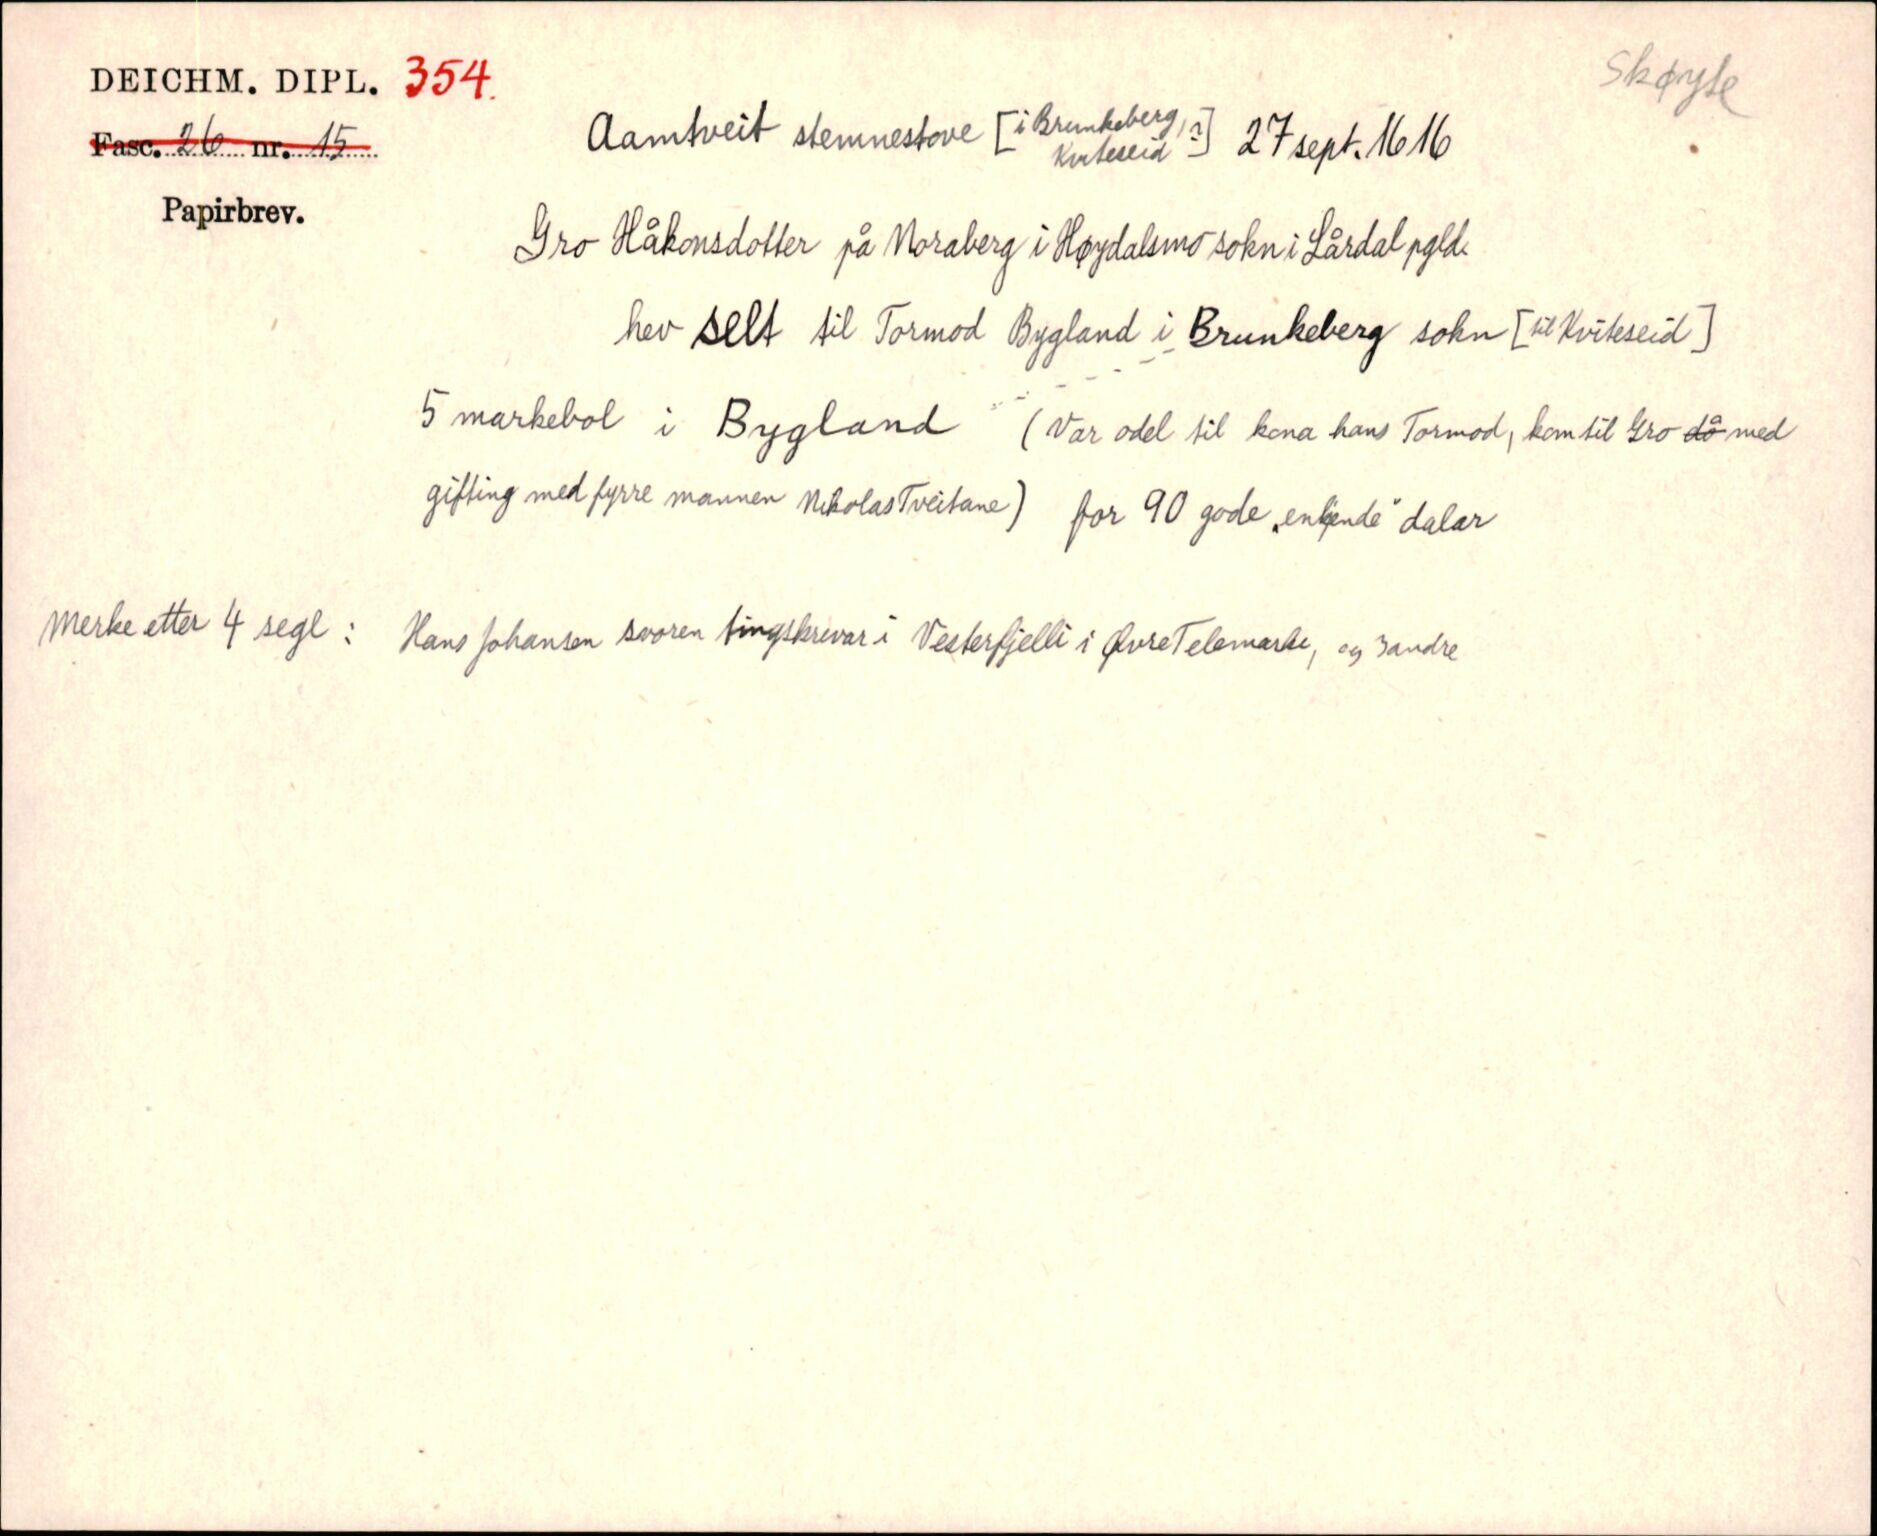 Skøyte
DEICHM. DIPL. 354.
Aamtveit stemnestove [i Brunkeberg, Kviteseid ?] 27 sept. 1616
Fasc. 26 nr. 15
Papirbrev.
Gro Håkonsdotter på Noraberg i Høydalsmo sokn i Lårdal pgld.
hev selt til Tormod Bygland i Brunkeberg sokn [til Kviteseid]
5 markebol i Bygland (Var odel til kona hans Tormod, kom til Gro då med
gifting med fyrre mannen Nikolas Tveitane) for 90 gode „enkende" dalar
Merke etter 4 segl: Hans Johansen svoren tingskrivar i Vesterfjelli i Øvre Telemark, og 3 andre